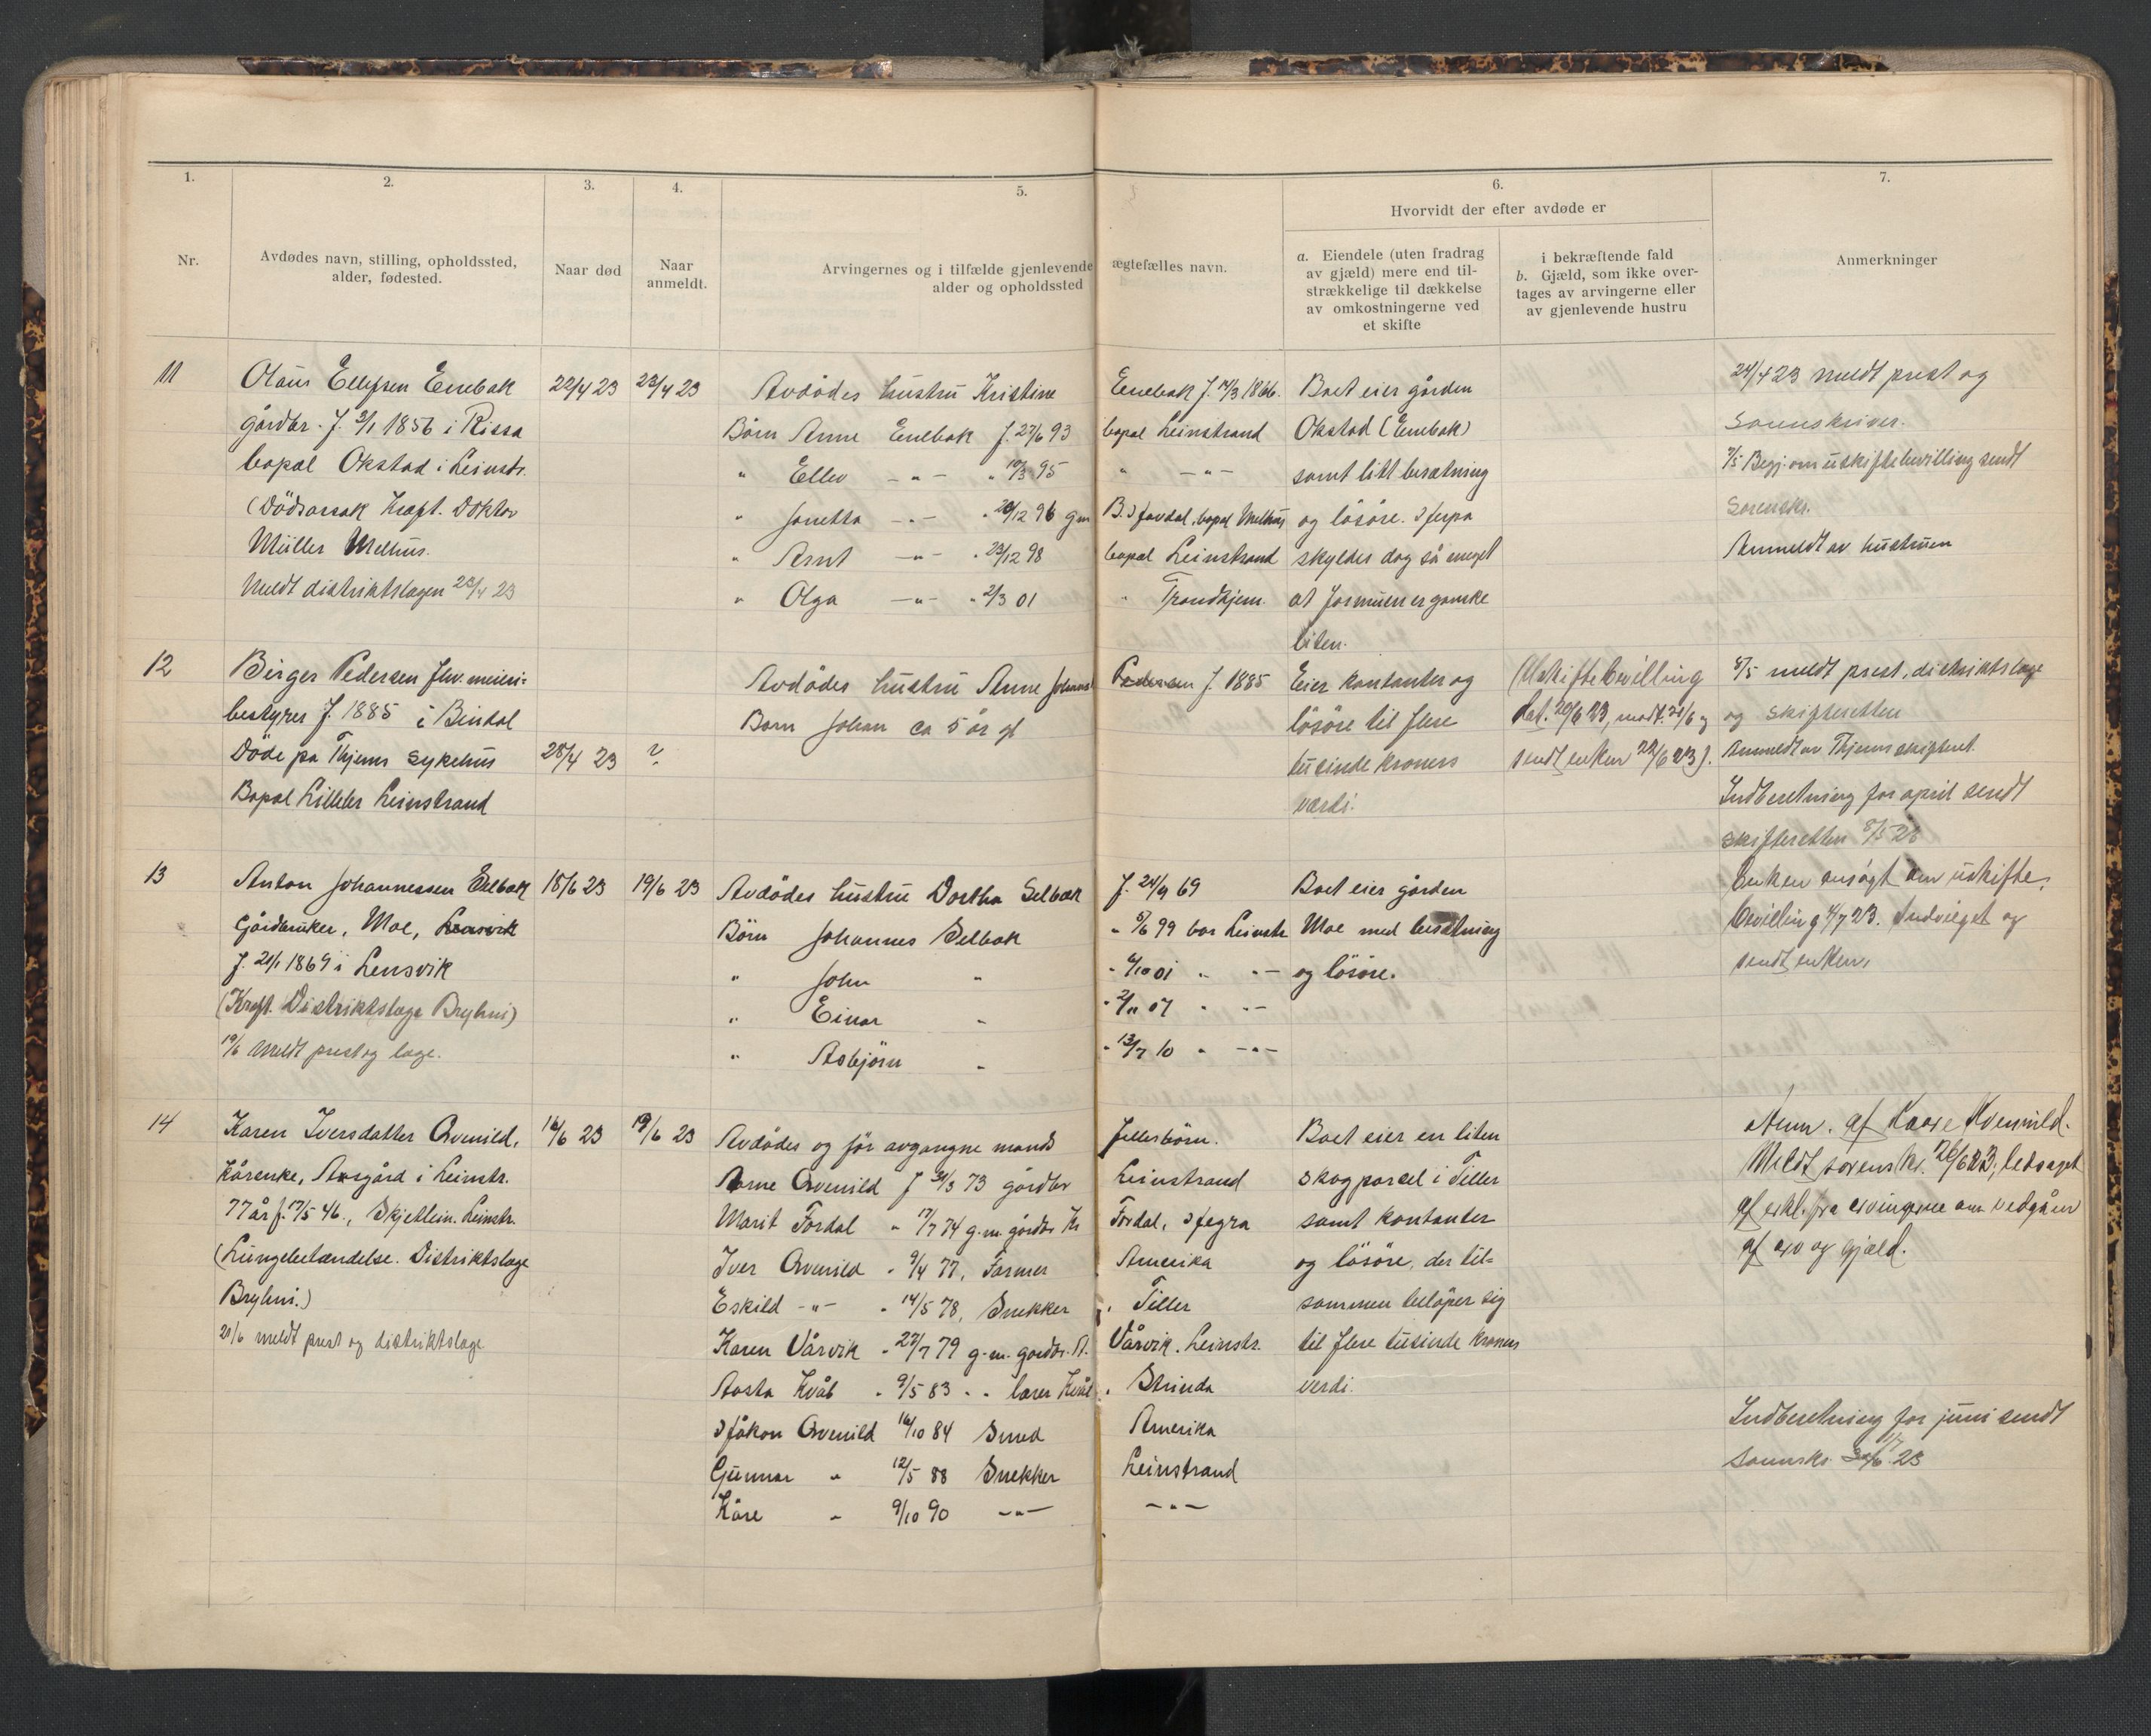 1.
2.
3.
4.
5.
6.
7.
Nr.
Avdødes navn, stilling, opholdssted,
alder, fødested.
Naar død
Naar
anmeldt.
Arvingernes og i tilfælde gjenlevende ægtefælles navn.
alder og opholdssted
Hvorvidt der efter avdøde er
a. Eiendele (uten fradrag
av gjæld) mere end til-
strækkelige til dækkelse
av omkostningerne ved
et skifte
i bekræftende fald
b. Gjæld, som ikke over-
tages av arvingerne eller
av gjenlevende hustru
Anmerkninger
11
Olaus Ellefsen Enebak
gårdbr. f. 3/1 1856 i Rissa
bopæl Okstad i Leinstr.
(Dödsorsak Kræft. Doktor
Müller Melhus.
Meldt distriktslægen 23/4 23
22/4 23
23/4 23
Avdödes hustru Kristine Enebak f. 14/3 1866.
Börn Anne Enebak f. 27/6 93 bopæl Leinstrand
" Ellev -"- " 10/3 95 " -"-
" Jonetta -"- " 20/12 96 gm B. Hovdal, bopæl Melhus
" Arnt -"- " 23/12 98 bopæl Leinstrand
" Olga -"- " 2/3 01 " Trondhjem.
Boet eier gården
Okstad (Enebak)
samt litt besætning
og lösöre. Herpa
skyldes dog så meget
at formuen er ganske
liten.
24/4 23 meldt prest og
sorenskriver.
7/5 Begj. om uskiftebevilling sendt
sorenskr.
Anmeldt av hustruen
12
Birger Pedersen fhv. meieri-
bestyrer f. 1885 i Bindal
Döde pa Thjems sykehus
Bopæl Lilleler Leinstrand
28/4 23
?
Avdödes hustru Anne Pedersen f. 1885
Barn Johan ca 5 år gl
Eier kontanter og
lösöre til flere
tusinde kroners
værdi.
(Uskiftebevilling
dat. 20/6 23, modt. 21/6 og
sendt enken 22/6 23).
8/5 meldt prest, distriktslæge
og skifteretten
Anmeldt av Thjems skifteret.
Indberetning for april sendt
skifteretten 8/5 23
13
Anton Johannessen Selbæk
Gårdbruker, Moe,
f. 21/1 1869 i Lensvik
(Kræft. Distriktslæge Bryhni)
19/6 Meldt prest og læge.
18/6 23
19/6 23
Avdödes hustru Dorthea Selbæk f. 24/9 69
Börn Johannes Selbæk " 5/6 99 bor Leinstr
" John " " 4/10 01 " "-
" Einar " " 2/11 07 " "-
" Asbjörn " " 13/7 10 " -"-
Boet eier gården
Moe med besætning
og lösöre.
Enken ansögt om uskifte-
bevilling 4/7 23. Indvilget og
sendt enken.
14
Karen Iversdatter Qvenild,
Kårenke, Åsgård i Leinstr.
77 år f. 17/5 46., Skjetlein. Leinstr.
(Lungebetændelse. Distriktslæge
Bryhni.)
20/6 meldt prest og distriktslæge
16/6 23
19/6 23
Avdödes og för avgangne mands fellesbörn.
Arne Qvenild f 31/3 73 gårdbr Leinstrand
Marit Fordal " 17/7 74 g.m. gårdbr Kr Fordal, Hegra
Iver Qvenild " 9/4 77, Farmer Amerika
Eskild -"- " 14/5 78, Snekker " Tiller
Karen Vårvik " 27/7 79 g.m. gårdbr. A. Vårvik. Leinstr.
Aasta Kvål " 9/5 83 " " lærer Kvål " Strinda
Håkon Qvenild 16/10 84 Smed Amerika
Gunnar " 12/5 88 Snekker Leinstrand
Kåre " 9/10 90 -"- -"-
Boet eier en liten
skogparsel i Tiller
samt kontanter
og lösöre, der til=
sammen belöper sig
til flere tusinde kroners
verdi.
Anm. af Kaare Kvenild.
Meldt sorenskr. 26/6 23, ledsaget
af erkl. fra arvingerne om vedgåen
af arv og gjæld.
Indberetning for juni sendt
sorenskr. 23